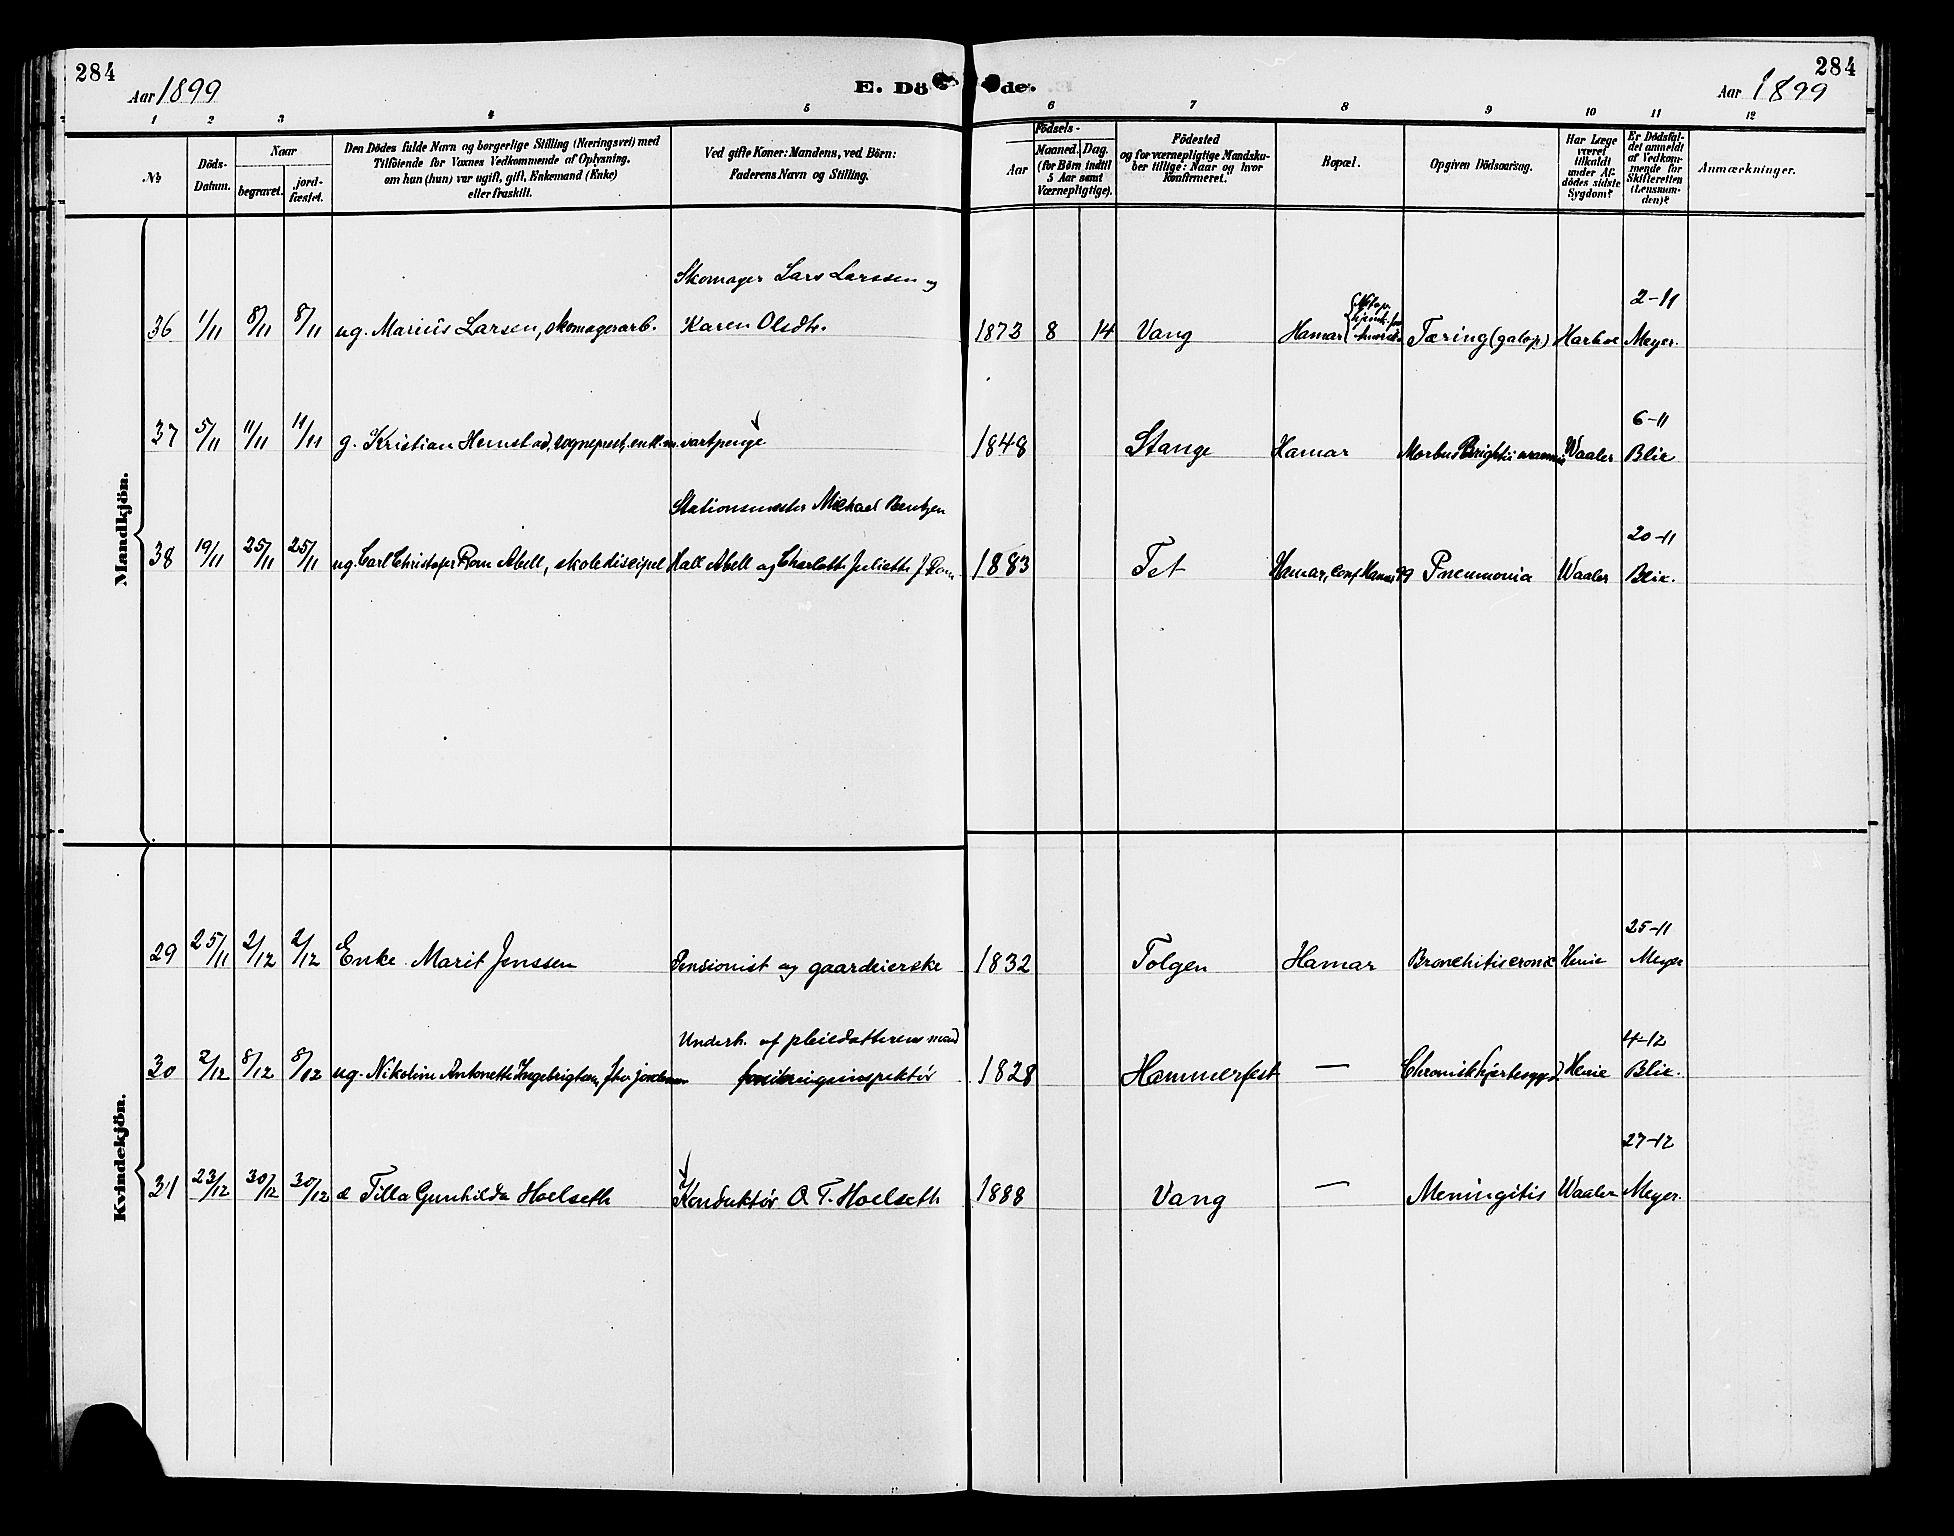 284
Aar 1899
E. Dö
de.
284
Aar 1899
1 2 3 4 5 6 7 8 9 10 11 12
№
Döds-
Datum.
Naar
begravet.
jord-
fæstet.
Den Dödes fulde Navn og borgerlige Stilling (Næringsvei) med
Tilföiende for Voxnes Vedkommende af Oplysning,
om han (hun) var ugift, gift, Enkemand (Enke)
eller fraskilt.
Ved gifte Koner: Mandens, ved Börn:
Faderens Navn og Stilling.
Födsels-
Aar
Maaned.
Dag.
(for Börn indtil
5 Aar samt
Værnepligtige).
Födested
og for værnepligtige Mandska-
ber tillige: Naar og hvor
Konfirmeret.
Bopæl.
Opgiven Dödsaarsag.
Har Læge
været
tilkaldt
under Af-
dödes sidste
Sygdom?
Er Dödsfal-
det anmeldt
af Vedkom-
mende for
Skifteretten
(Lensman-
den)?
Anmærkninger.
Mandkjön.
Skomager Lars Larssen og
36 1/11 8/11 8/11 ug. Marius Larsen, skomagerarb. Karen Olsdtr. 1873 8 14 Vang Hamar Tæring (galop) Harboe 2-11 Meyer.
37 5/11 11/11 11/11 g. Kristian Hernstad, sogneprest, vartpenge 1848 Stange Hamar Morbus Brightii Waaler 6-11 Blix
Stationsmester Michael Bentzen
38 19/11 25/11 25/11 ug. Carl Christofer Rom Abell, skolediscipel Hall Abell og Charlotte Juliette J. Rom 1883 Fet Hamar, conf Hamar 99 Pneumonia Waaler 20-11 Blix.
Kvindekjön.
29 25/11 2/12 2/12 Enke Marit Jenssen Pensionist og gaardeierske 1832 Tolgen Hamar Bronchitis cronic Henie 25-11 Meyer
Underh. af pleiedatterens mand
30 2/12 8/12 8/12 ug. Nikoline Antonette Ingebrigtsen, 1828 Hammerfest — Chronisk hjertesygd. Henie 4-12 Blix.
31 23/12 30/12 30/12 d Tilla Gunhilda Hoelseth Konduktör O. T. Hoelseth 1888 Vang — Meningitis Waaler 27-12 Meyer.